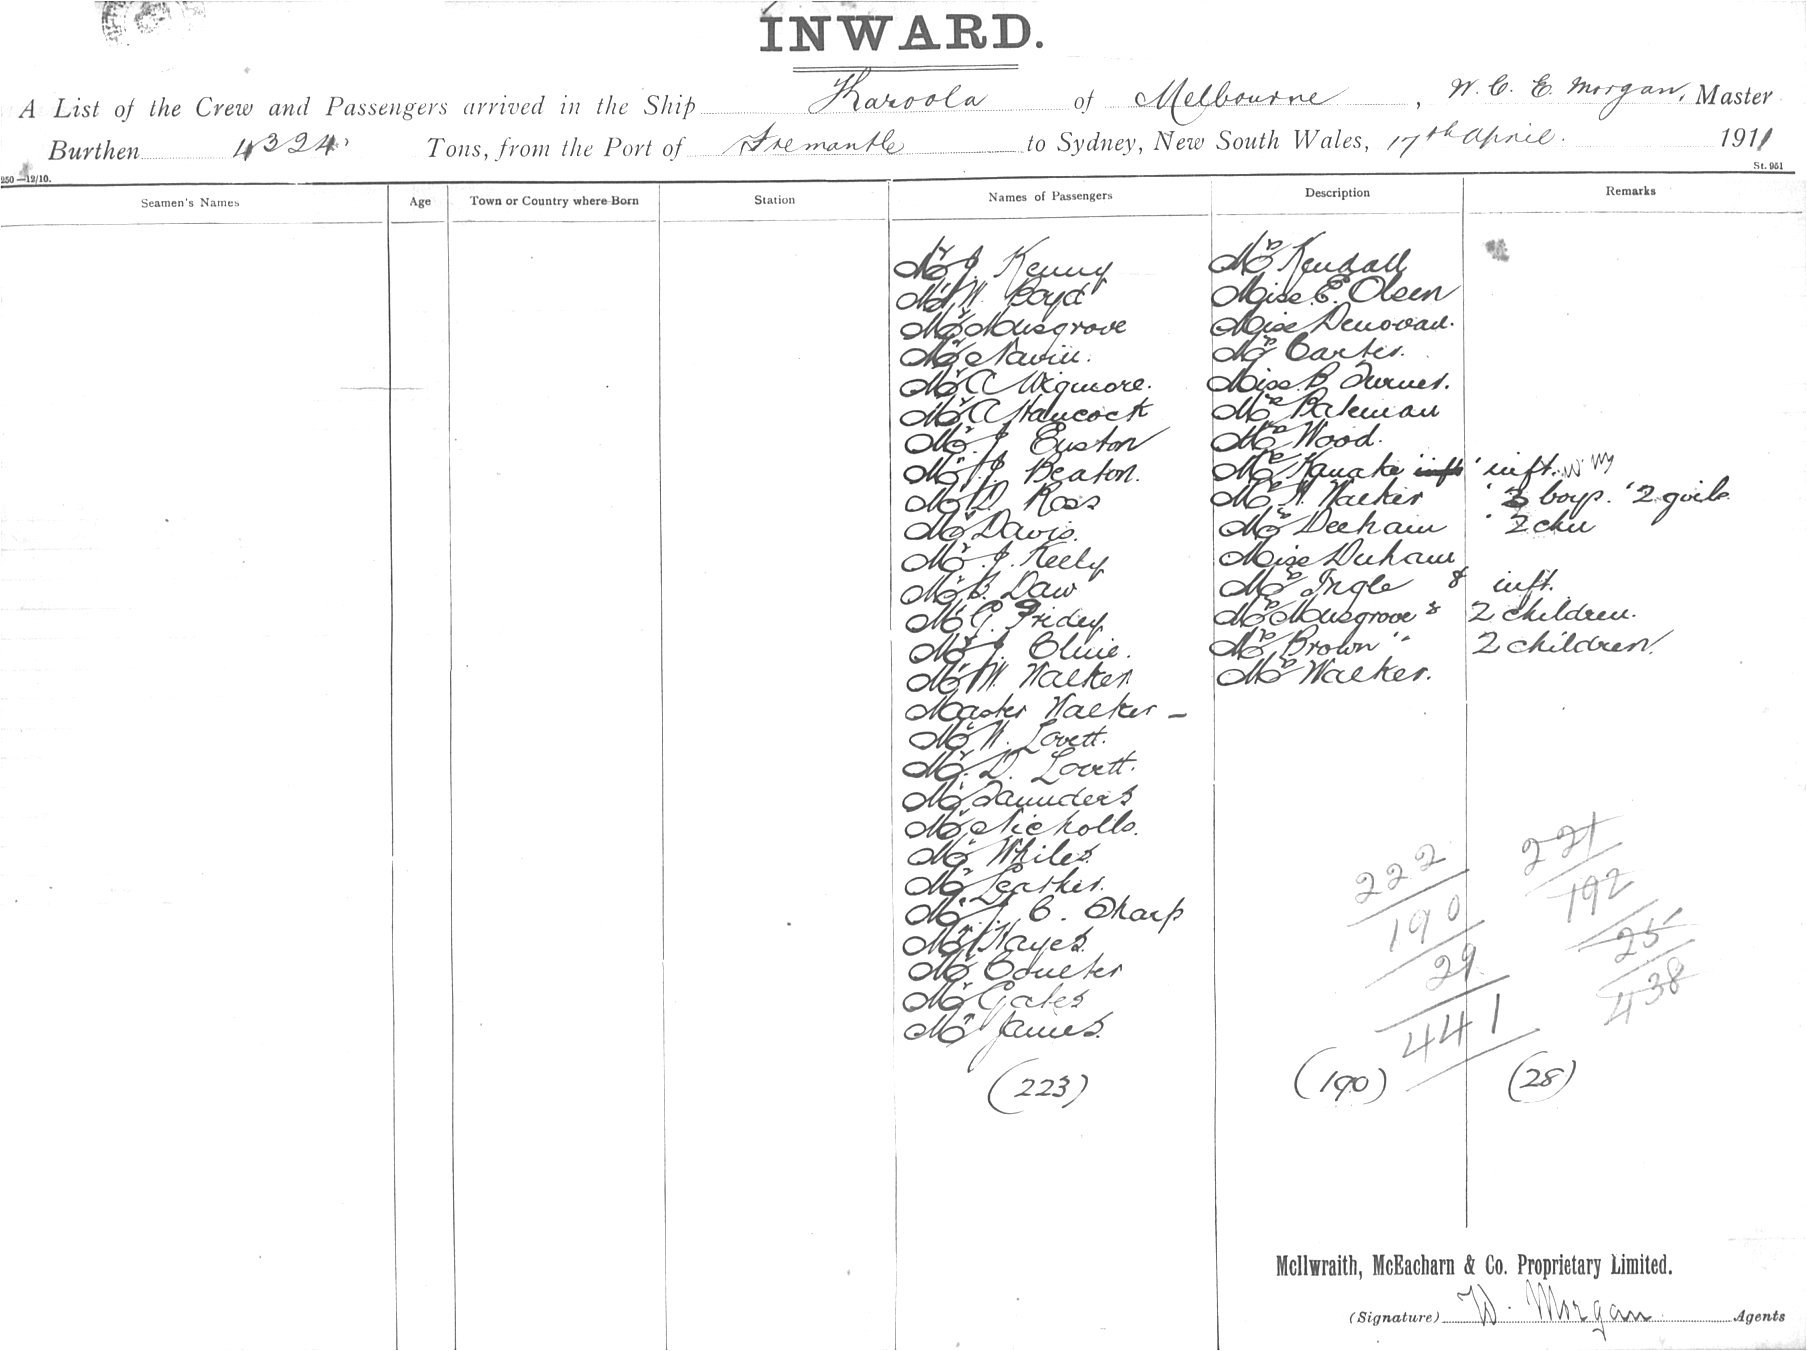 INWARD.
A List of the Crew and Passengers arrived in the Ship Karoola of Melbourne, W. C. E. Morgan, Master
Burthen 4324 Tons, from the Port of Fremantle to Sydney, New South Wales, 17th April. 1911
250—12/10. St. 951
Seamen's Names Age Town or Country where Born Station Names of Passengers Description Remarks
Mr J. Kenny Mrs Kendall
Mr W. Boyd Miss E. Olsen
Mr Musgrove Miss Denovan.
Mr Navin. Mrs Carter.
Mr C Wigmore. Miss B. Turner.
Mr A Hancock Mrs Bateman
Mr J Euston Mrs Wood.
Mr J. Beaton. Mrs Kanake ' inft.
Mr D. Ross Mrs W. Walker ' 3 boys. ' 2 girls
Mr Davis. Mrs Deeham ' 2 chn
Mr J. Keely Miss Duham
Mr B. Daw Mrs Ingle & inft.
Mr G. Pridey Mrs Musgrove & 2 children.
Mr J. Clive. Mrs Brown " 2 children.
Mr W. Walker. Mrs Walker.
Master Walker –
Mr W. Lovett.
Mr D. Lovett.
Mr Saunders
Mr Nicholls.
Mr Whiles.
Mr Leather.
Mr J. C. Sharp
Mr Hayes.
Mr Coulter
Mr Gates
Mr James.
222 221
190 192
29 25
441 438
(223) (190) (28)
McIlwraith, McEacharn & Co. Proprietary Limited.
(Signature) W. Morgan Agents